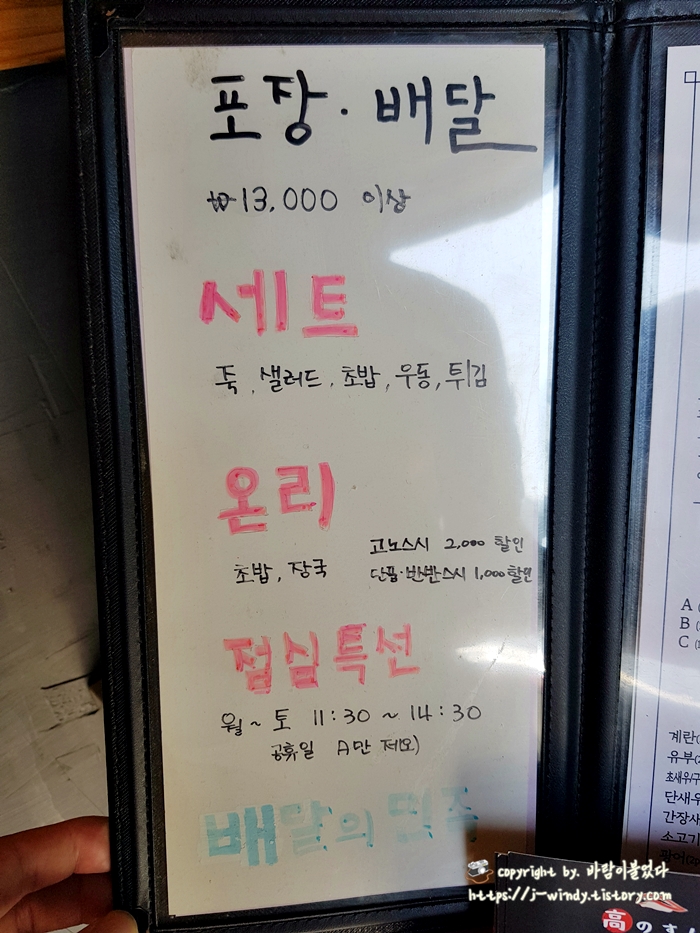 포장·배달
₩13,000 이상
세트
죽, 샐러드, 초밥, 우동, 튀김
온리
초밥, 장국
고노스시 2,000 할인
단품·반반스시 1,000 할인
점심특선
월~토 11:30~14:30
공휴일 A만 제외)
배달의 민족
A
B
C
계란
유부
초새우
단새우
간장새
소고기
광어
copyright by. 바람이불었다
https://j-windy.tistory.com
高のすし